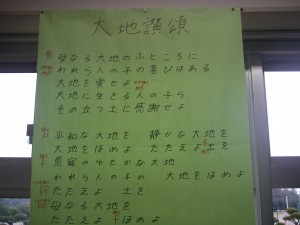 大地讃頌
母なる大地のふところに
われら人の子の喜びはある
大地を愛せよ
大地に生きる人の子ら
その立つ土に感謝せよ
平和な大地を 静かな大地を
大地をほめよ たたえよ土を
恩寵のゆたかな大地
われら人の子の 大地をほめよ
たたえよ 土を
母なる大地を
たたえよ ほめよ